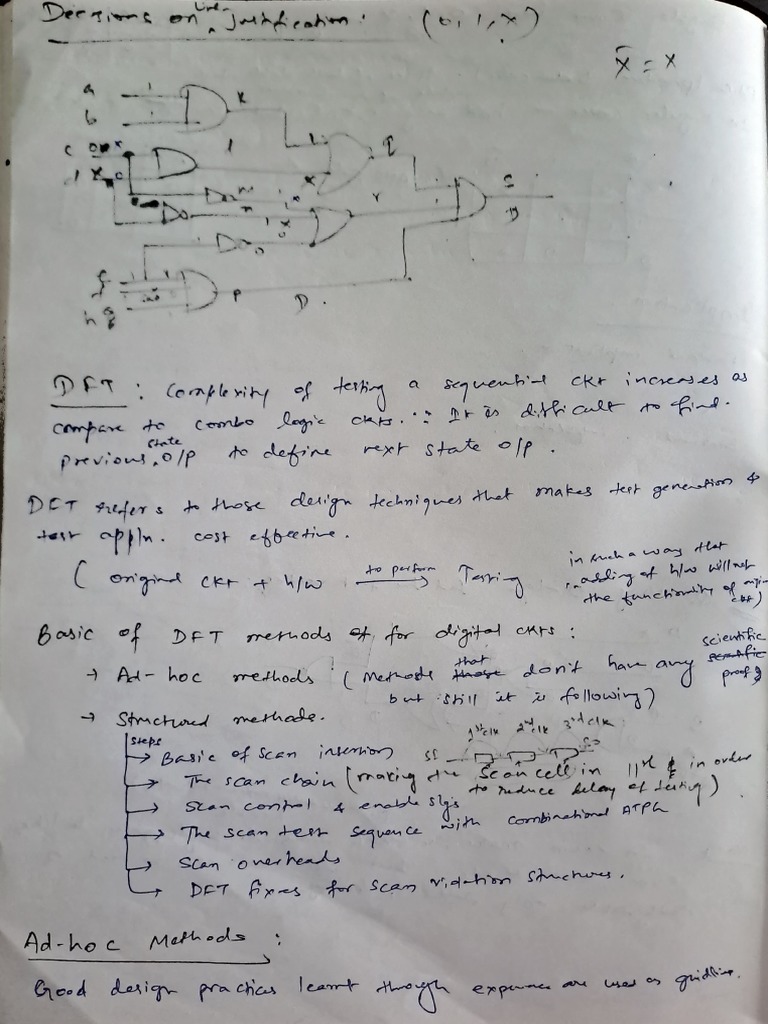 Decisions on Line justification : (0, 1, x)
x̄ = x
a 1 k
b 1 1 q
c 0 x l
d x 0 x s
m r
n 1 x D
o
f
h p D.
DFT : Complexity of testing a sequential ckt increases as
compare to combo logic ckts. ∵ It is difficult to find.
previous state o/p to define next state o/p.
DFT refers to those design techniques that makes test generation &
test appln. cost effective.
( original ckt + h/w to perform → Testing in such a way that
adding of h/w will not
the functionality of ckt)
Basic of DFT methods for digital ckts :
→ Ad-hoc methods ( Methods that those don't have any scientific
proof
but still it is following)
→ Structured methods.
1st clk 2nd clk 3rd clk
steps
→ Basic of scan insertion SI
→ The scan chain (making the Scan cell in 11rl in order
to reduce delay of testing)
→ Scan control & enable sigs
→ The scan test sequence with combinational ATPG
→ Scan overheads
→ DFT fixes for scan violation structures.
Ad-hoc Methods :
Good design practices learnt through experience are used as guidline.